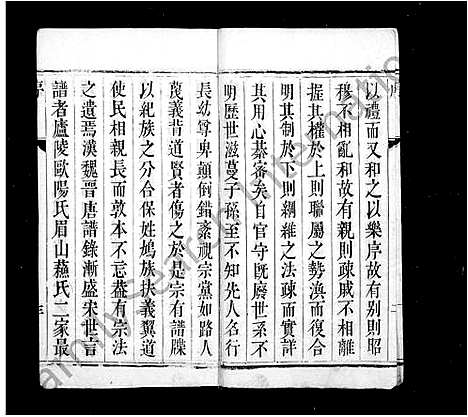 以禮而又和之以樂序故有别則昭
穆不相亂和故有親則疎戚不相離
握其權於上則聯屬之勢渙而復合
明其制於下則綱維之法疎而實詳
其用心綦審矣自官守旣廢世系不
明歷世滋蔓子孫至不知先人名行
長幼尊卑顚倒錯紊視宗黨如路人
蔑義背道賢者傷之於是宗有譜牒
以紀族之分合保姓鳩族扶義翼道
使民相親長而敦本不忘葢有宗法
之遺焉漢魏晉唐譜錄漸盛宋世言
譜者廬陵歐陽氏眉山蘓氏二家最
序
三
FamilySearch International